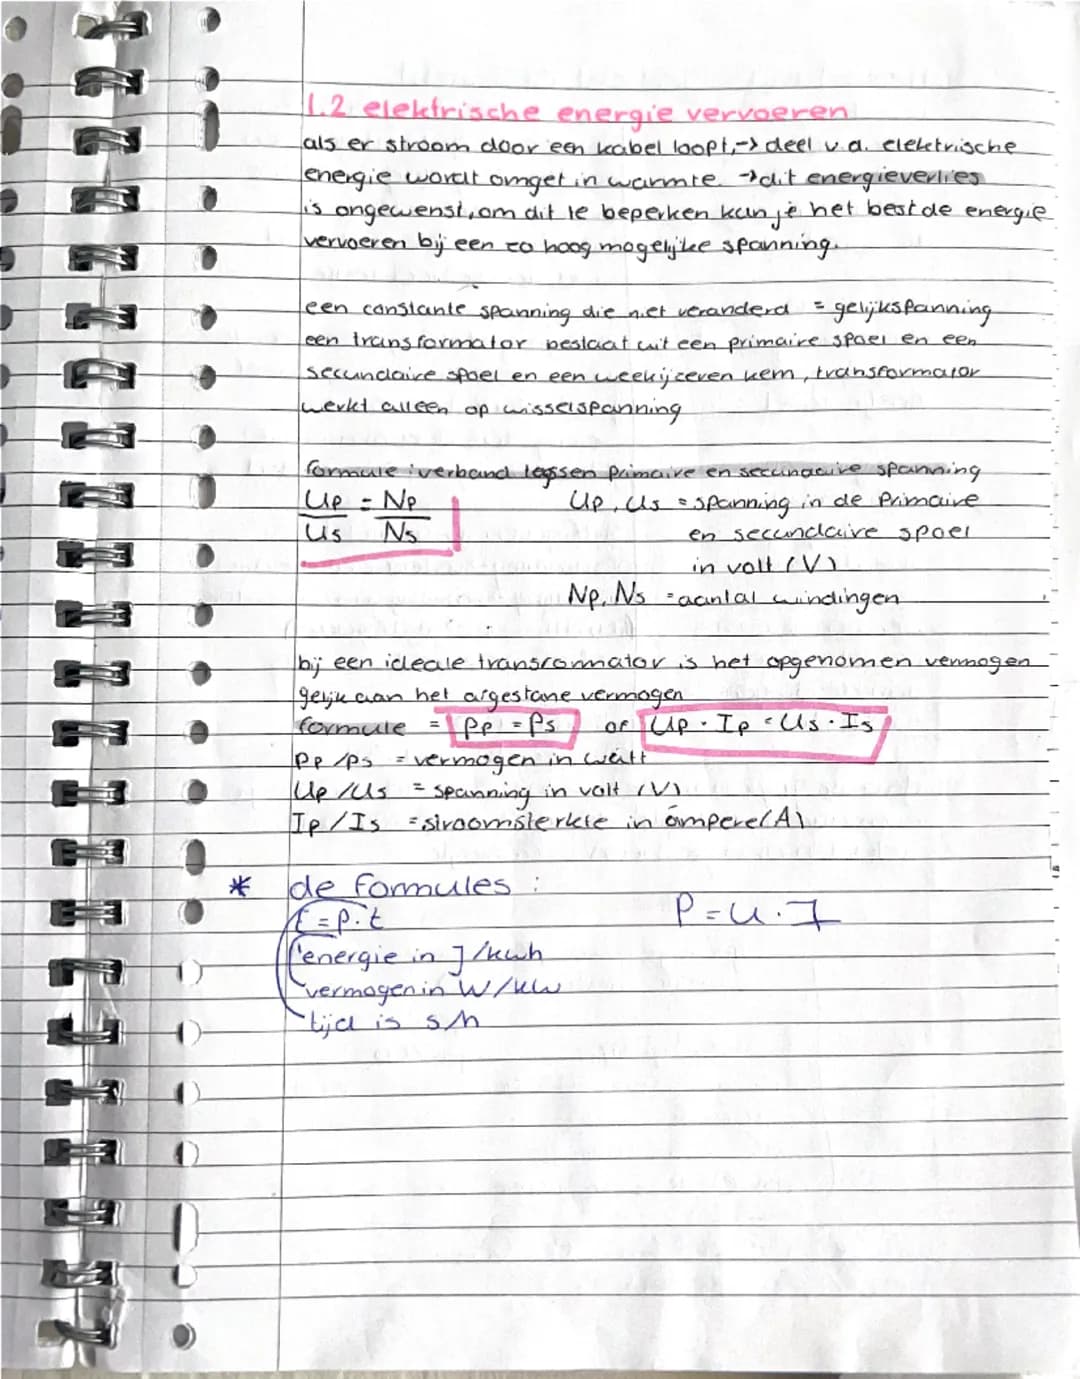 1.2 elektrische energie vervoeren
als er stroom door een kabel loopt,-> deel v.a. elektrische
energie wordt omget in warmte. ->dit energieverlies
is ongewenst, om dit te beperken kun je het best de energie
vervoeren bij een zo hoog mogelijke spanning.
een constante spanning die niet veranderd = gelijkspanning
een transformator bestaat uit een primaire spoel en een
secundaire spoel en een weekijzeren kern, transformator
werkt alleen op wisselspanning
formule : verband tussen primaire en secundaire spanning
Up = Np
Us Ns
Up, Us = spanning in de Primaire
en secundaire spoel
in volt (V)
Np, Ns = aantal windingen
bij een ideale transformator is het opgenomen vermogen
gelijk aan het afgestane vermogen
formule = Pp = Ps of Up · Ip = Us · Is
Pp /Ps = vermogen in watt
Up /Us = spanning in volt (V)
Ip / Is = stroomsterkte in ampere(A)
* de formules :
E = P·t P = U · I
energie in J /kwh
vermogen in W/kW
tijd is s/h